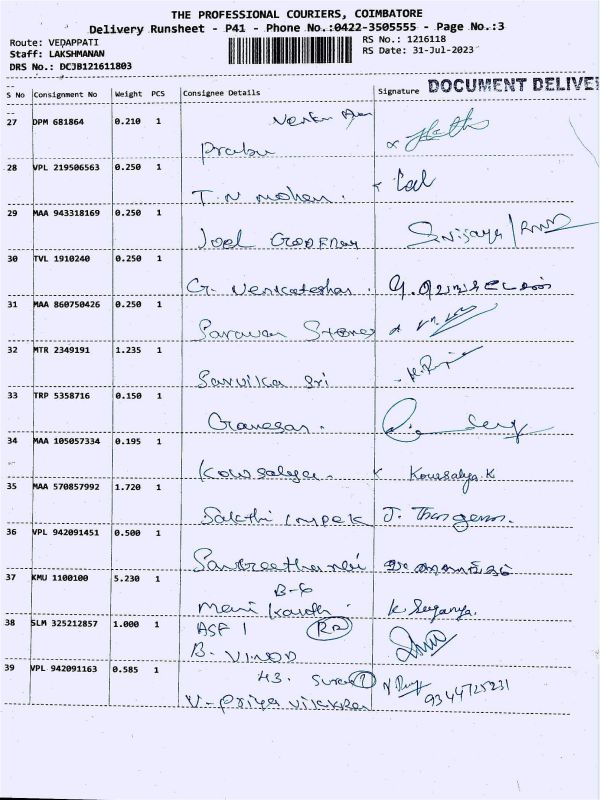 THE PROFESSIONAL COURIERS, COIMBATORE
Delivery Runsheet - P41 - Phone No.:0422-3505555 - Page No.:3
Route: VEDAPPATI
Staff: LAKSHMANAN
DRS No.: DCJB121611803
RS No.: 1216118
RS Date: 31-Jul-2023
DOCUMENT DELIVE
S No Consignment No Weight PCS Consignee Details Signature
27 DPM 681864 0.210 1
Prabu
28 VPL 219506563 0.250 1
T. N mohan.
29 MAA 943318169 0.250 1
Joel
30 TVL 1910240 0.250 1
G. Venkateshan.
31 MAA 860750426 0.250 1
Saravan Stones
32 MTR 2349191 1.235 1
Sarvika Sri
33 TRP 5358716 0.150 1
Ganesan.
34 MAA 105057334 0.195 1
Kowsalya. Kowsalya K
35 MAA 570857992 1.720 1
Sakthi Impek J.
36 VPL 942091451 0.500 1
37 KMU 1100100 5.230 1
B-6
Mani K Suganya.
38 SLM 325212857 1.000 1
ASF 1
B. VINOD
39 VPL 942091163 0.585 1
43.
V-Priya 9344725231